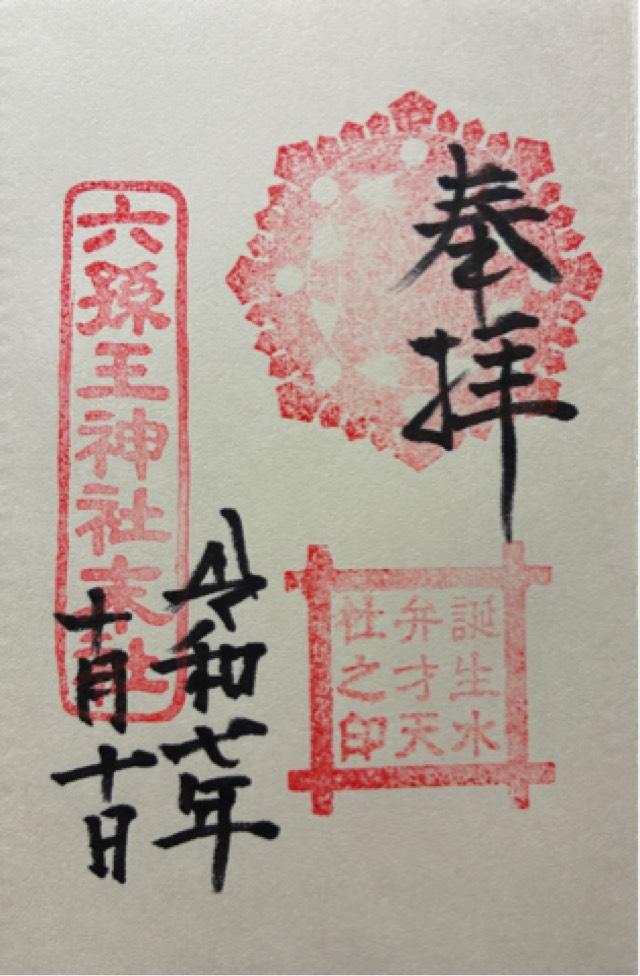 奉拝
誕生水
弁才天
社之印
六孫王神社末社
令和七年
十月十日